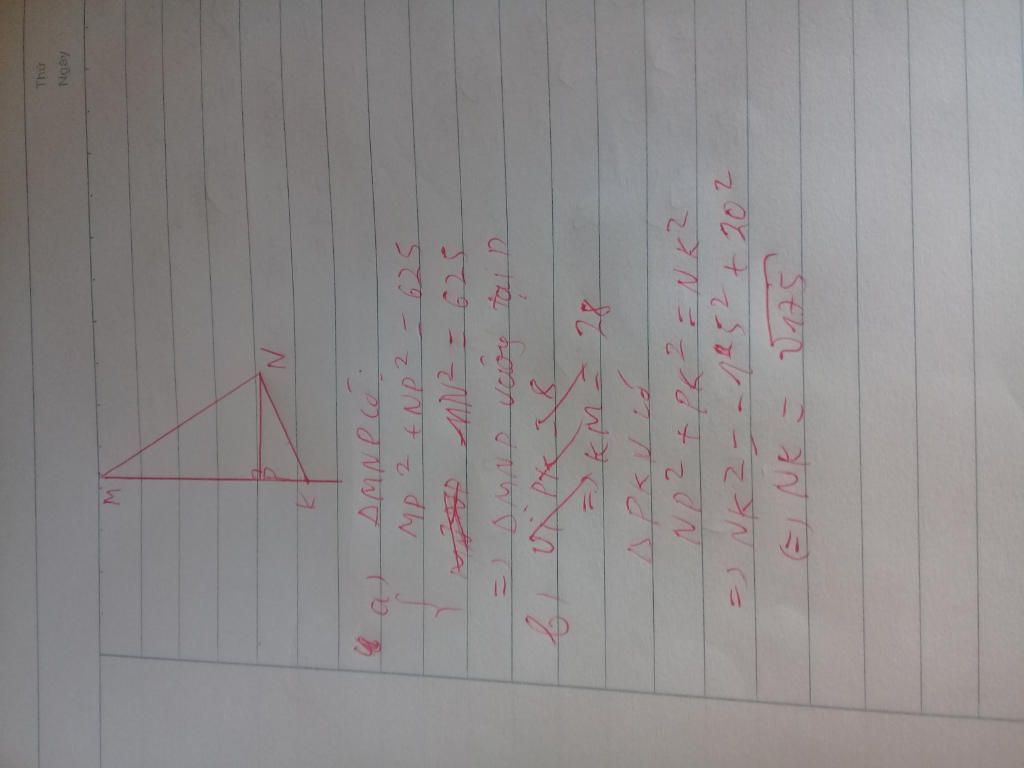 Thứ
Ngày
M
N
P
K
a) ΔMNP có:
{ MP² + NP² = 625
MN² = 625
=> ΔMNP vuông tại P
b) Vì PK = 8
=> KM = 28
ΔPKN có
NP² + PK² = NK²
=> NK² = 15² + 20²
(=) NK = √175